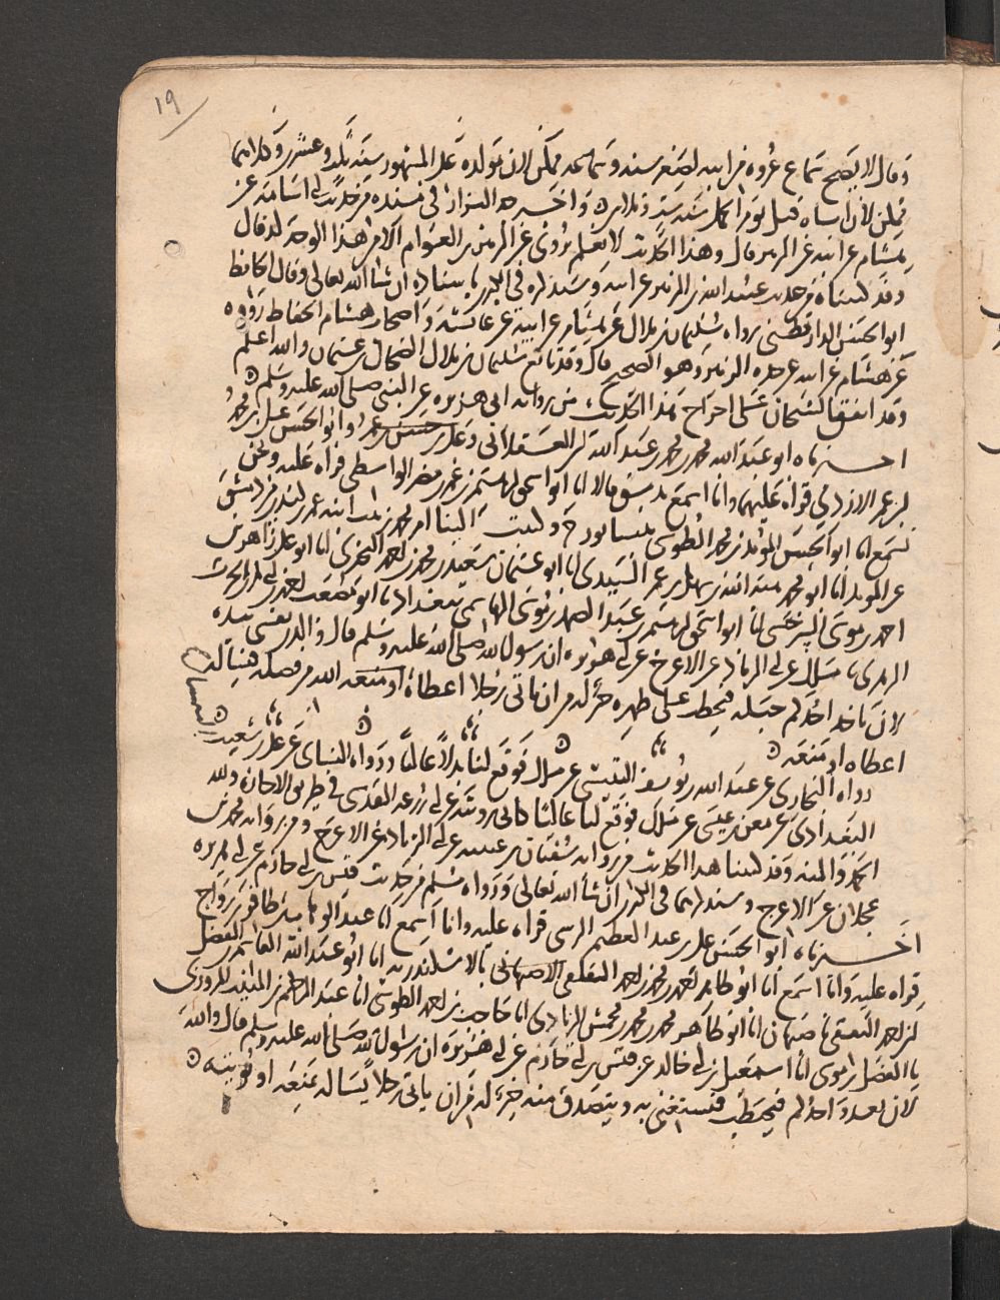 ١٩
وقال لا يصح سماع عروة من ابيه لصغر سنه وسماعه ممكن لان مولده على المشهور سنة ثلاث وعشرين
ممكن لان اباه قتل يوم الجمل سنة ست وثلاثين واخرجه البزار في مسنده من حديث ابي اسامة عن
هشام عن ابيه عن الزبير قال وهذا الحديث لا نعلم يروى عن الزبير بن العوام الا من هذا الوجه
وقد كتبناه من حديث عبد الله بن الزبير عن ابيه وسنذكره في باسناده ان شا الله تعالى وقال الحافظ
ابو الحسن الدارقطني رواه سليمان بن بلال عن هشام عن ابيه عن عائشة واصحاب هشام الحفاظ رووه
عن هشام عن ابيه عن جده الزبير وهو الصحيح قال وقد تابع سليمان بن بلال الضحاك بن عثمان والله اعلم
وقد اتفق الشيخان على اخراج هذا الحديث من رواية ابي هريرة عن النبي صلى الله عليه وسلم
اخبرناه ابو عبد الله محمد بن محمد بن عبد الله العسقلاني وابو الحسن علي بن محمد
بن عمر الازدي قراة عليهما وانا اسمع بدمشق قالا انا ابو اسحق ابرهيم بن عمر بن مضر الواسطي قراة عليه ونحن
نسمع انا ابو الحسن المؤيد بن محمد الطوسي بنيسابور ح وكتبت الينا ام محمد زينب ابنة عمر بن كندي من دمشق
عن المويد انا ابو محمد هبة الله بن سهل بن عمر السيدي انا ابو عثمان سعيد بن محمد بن احمد البحيري انا ابو علي زاهر بن
احمد بن موسى السرخسي انا ابو اسحق ابرهيم بن عبد الصمد بن موسى الهاشمي ببغداد نا ابو مصعب احمد بن ابي بكر بن الحرث
الزهري نا مالك عن ابي الزناد عن الاعرج عن ابي هريرة ان رسول الله صلى الله عليه وسلم قال والذي نفسي بيده
لان ياخذ احدكم حبله فيحطب على ظهره خير له من ان ياتي رجلا اعطاه الله من فضله فيساله
اعطاه او منعه
رواه البخاري عن عبد الله بن يوسف التنيسي عن مالك فوقع لنا بدلا عاليا ورواه النساي عن علي بن شعيب
البغدادي عن معن بن عيسى عن مالك فوقع لنا عاليا كاني رويته عن ابي زرعة المقدسي في طريق الاجازة ولله
الحمد والمنة وقد كتبنا هذا الحديث من رواية سفيان بن عيينة عن ابي الزناد عن الاعرج ومن رواية محمد بن
عجلان عن الاعرج وسنذكرهما في ان شا الله تعالى ورواه مسلم من حديث قيس بن ابي حازم عن ابي هريرة
اخبرناه ابو الحسن علي بن عبد العظيم الرسي قراة عليه وانا اسمع انا عبد الوهاب بن ظافر بن رواج
قراة عليه وانا اسمع انا ابو طاهر احمد بن محمد بن احمد السلفي الاصبهاني بالاسكندرية انا ابو عبد الله القاسم بن الفضل
بن احمد الثقفي باصبهان انا ابو طاهر محمد بن محمد بن محمش الزيادي انا حاجب بن احمد الطوسي انا عبد الرحيم بن المنيب المروزي
نا الفضل بن موسى انا اسمعيل بن ابي خالد عن قيس بن ابي حازم عن ابي هريرة ان رسول الله صلى الله عليه وسلم قال والله
لان يغدو احدكم فيحتطب فيستغني به ويتصدق منه خير له من ان ياتي رجلا يساله يمنعه او يوتيه